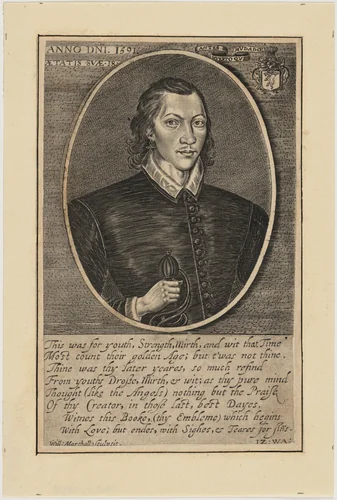 ANNO DNI. 1591
ÆTATIS SVÆ. 18
ANTES MVERTO QVE MVDADO
This was for youth, Strength, Mirth, and wit that Time
Most count their golden Age; but t'was not thine.
Thine was thy later yeares, so much refind
From youths Drosse, Mirth, & wit; as thy pure mind
Thought (like the Angels) nothing but the Praise
Of thy Creator, in those last, best Dayes.
Witnes this Booke, (thy Embleme) which begins
With Love; but endes, with Sighes, & Teares for sins.
Will: Marshall sculpsit.
IZ: WA: